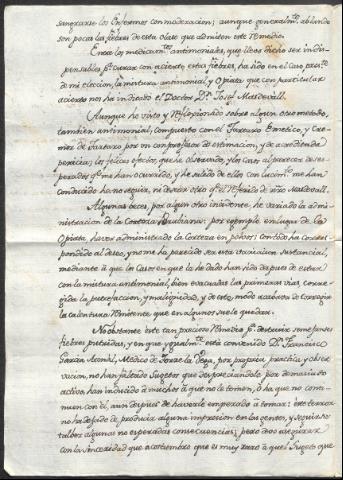 sangrarse los Enfermos con moderacion; aunque generalm.te ablando
son pocas las fiebres de esta clase que admiten este remedio.
Entre los medicam.tos antimoniales, que llevo dicho ser indis-
pensables p.a curar con acierto estas fiebres, ha sido en el caso
de mi eleccion, la mixtura antimonial, y Opiata que con particular
acierto nos ha indicado el Doctor D.n Josef Masdevall.
Aunque he visto y reflexionado sobre algun otro metodo,
tambien antimonial, compuesto con el Tartaro Emetico, y Cre-
mor de Tartaro por un comprofesor de estimacion, y de acreditada
pericia; los felices efectos, que he observado, y los casos al parecer deses-
perados q.e me han ocurrido, y he salido de ellos con lucim.to me han
conducido ha no seguir, ni desear otro q.e el referido de dho Masdevall.
Algunas veces, por algun otro incidente, he variado la admi-
nistracion de la Corteza Peruviana: por egemplo en lugar de la
Opiata haver administrado la Corteza en polvos: con todo ha corres-
pondido al deseo, y no me ha parecido ser esta variacion substancial,
mediante á que los Casos en que la he dado han sido despues de estar
con la mixtura antimonial, bien evacuadas las primeras vias, corre-
gida la putrefaccion, y malignidad, y de este modo acabar de corregir
la calentura remitente que en algunos suele quedar.
No obstante este tan precioso remedio p.a destruir semejantes
fiebres putridas, y en que igualm.te esta convenido D.n Francisco
Garcia Arenal, Medico de Torre la Vega, por propria practica, y obser-
vacion, no han faltado Sugetos que despreciandole por demasiado
activo han inducido á muchos á que no le tomen, ó ha que no conti-
nuen con él, aun despues de haverle empezado á tomar: este terror
no ha dejado de producir alguna impresion en las gentes, y seguirse
tal vez algunas no esperadas consecuencias; pero devo asegurar
con la sinceridad que acostumbro que es muy raro á q.e el Sugeto que